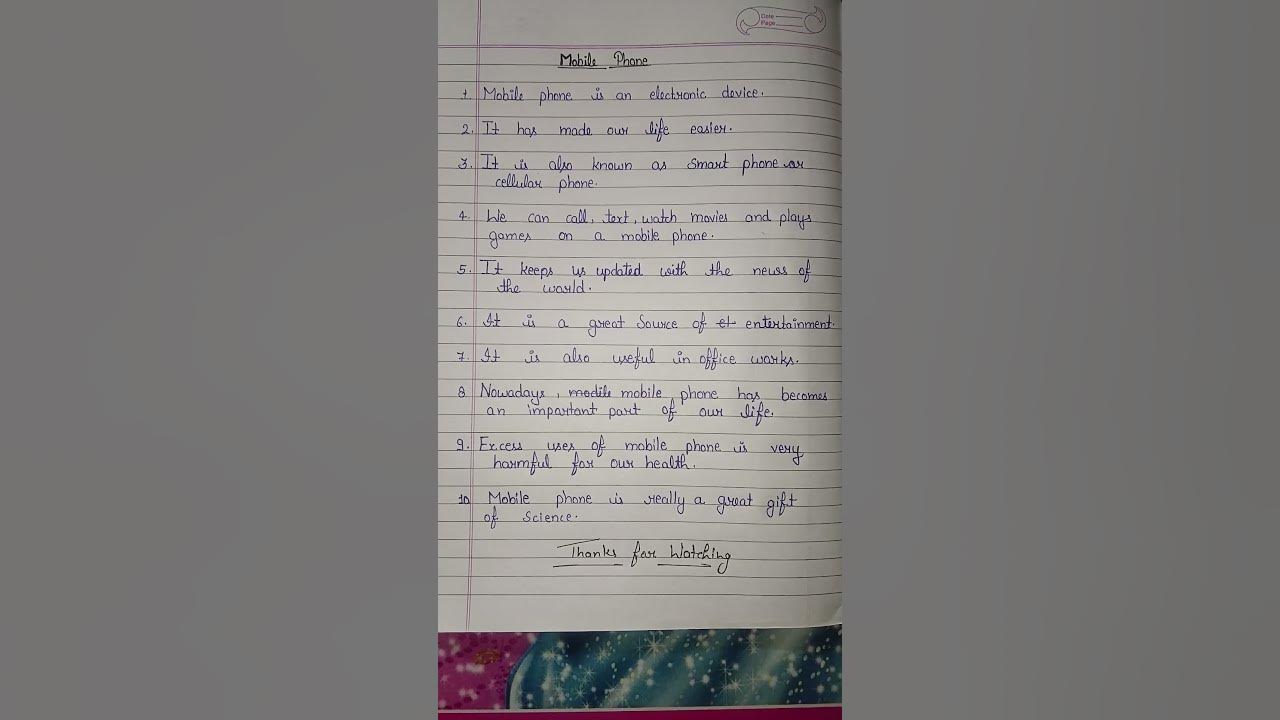 Date
Page
Mobile Phone
1. Mobile phone is an electronic device.
2. It has made our life easier.
3. It is also known as Smart phone or
cellular phone.
4. We can call, text, watch movies and plays
games on a mobile phone.
5. It keeps us updated with the news of
the world.
6. It is a great Source of et entertainment.
7. It is also useful in office works.
8 Nowadays, modile mobile phone has becomes
an important part of our life.
9. Excess uses of mobile phone is very
harmful for our health.
10 Mobile phone is really a great gift
of Science.
Thanks for Watching